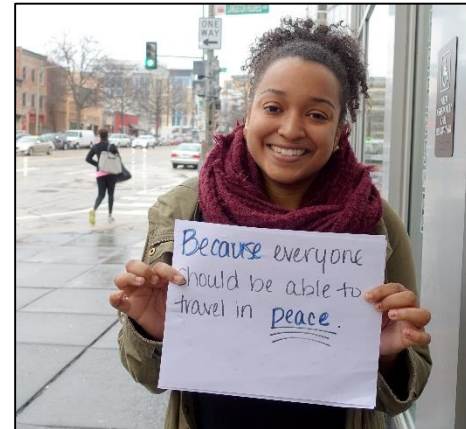 ONE
WAY
Because everyone
should be able to
travel in peace.